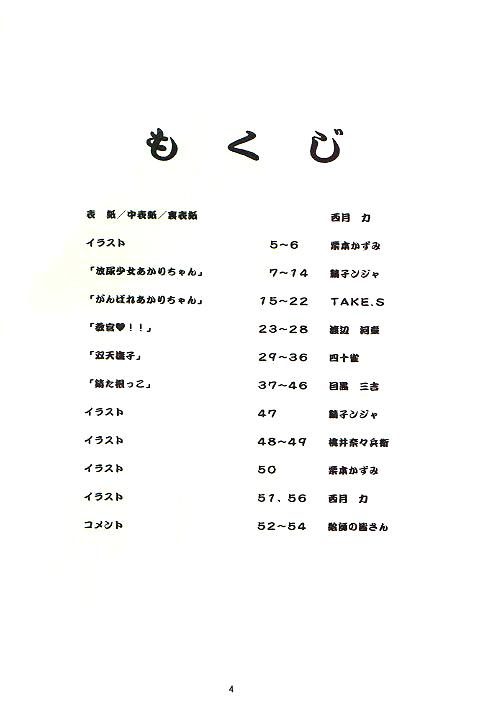 もくじ
表　紙／中表紙／裏表紙　西月　力
イラスト　5～6　栗本かずみ
「放尿少女あかりちゃん」　7～14　鍋子ンジャ
「がんばれあかりちゃん」　15～22　TAKE.S
「教官♥！！」　23～28　渡辺
「双天撫子」　29～36　四十雀
「たれっこ」　37～46　目黒　三吉
イラスト　47　鍋子ンジャ
イラスト　48～49　桃井奈々兵衛
イラスト　50　栗本かずみ
イラスト　51、56　西月　力
コメント　52～54　絵師の皆さん
4